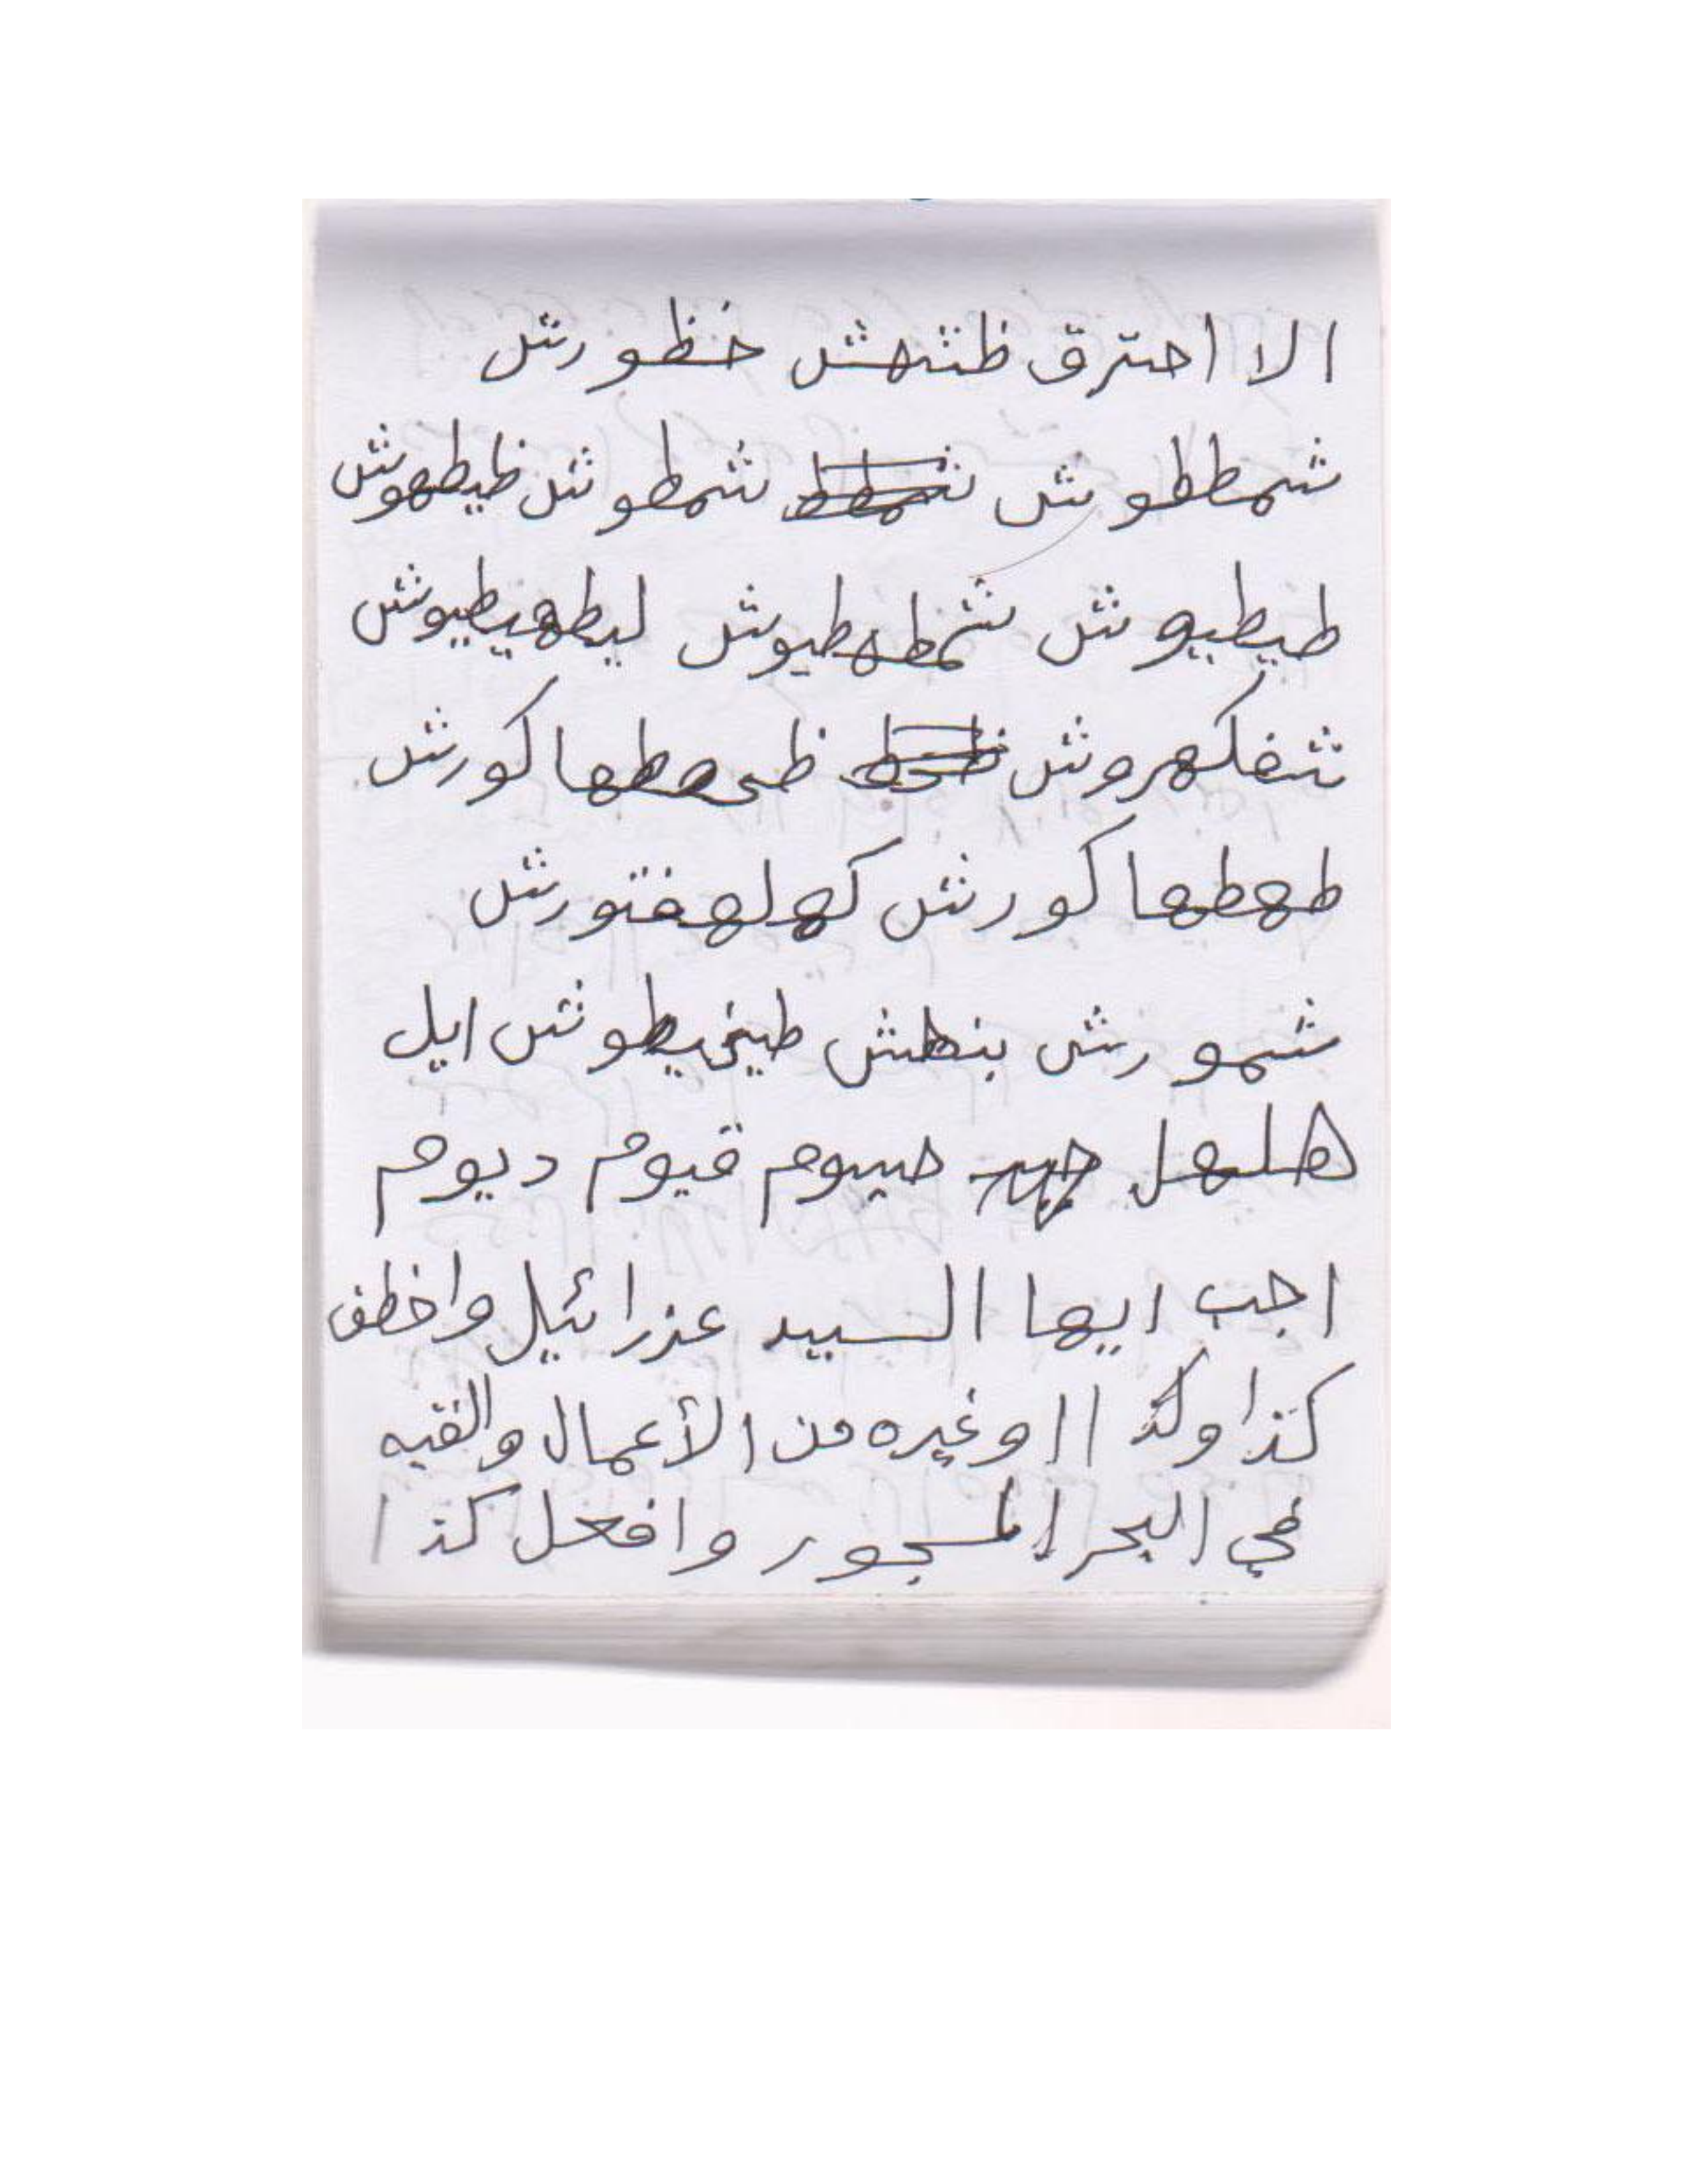 الا احترق ظشهش خظورش
شمططوش شمطوش ظيطهوش
طيطيوش شمطهطيوش ليطهيطيوش
شفلكهروش كورش
طهطها كورش كهلهفتورش
شمورش بنطش طيخيطوش ايل
هلهل حيوم قيوم ديوم
اجب ايها السيد عزرائيل واخطف
كذا وكذا او غيره من الأعمال والقيه
في البحر المسجور وافعل كذا